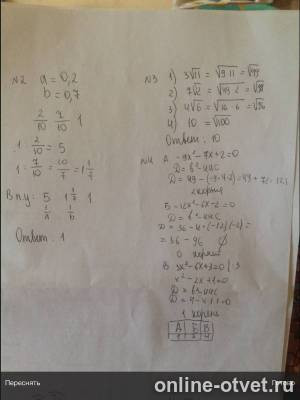 №2 a = 0,2
b = 0,7
2/10 7/10 1
1 : 2/10 = 5
1 : 7/10 = 10/7 = 1 3/7
В п.у: 5 1 3/7 1
1/a 1/b
Ответ: 1
№3 1) 3√11 = √9·11 = √99
2) 7√2 = √49·2 = √98
3) 4√6 = √16·6 = √96
4) 10 = √100
Ответ: 10
№4 А -9x²-7x+2=0
D = b²-4ac
D = 49-(-9·4·2)=49+72=121
2 корня
Б -12x²-6x-2=0
D = b²-4ac
D = 36-4·(-12)(-2)=
= 36-96 ∅
0 корней
В 3x²-6x+3=0 |:3
x²-2x+1=0
D = b²-4ac
D = 4-4·1·1=0
1 корень
А Б В
Переснять
online-otvet.ru